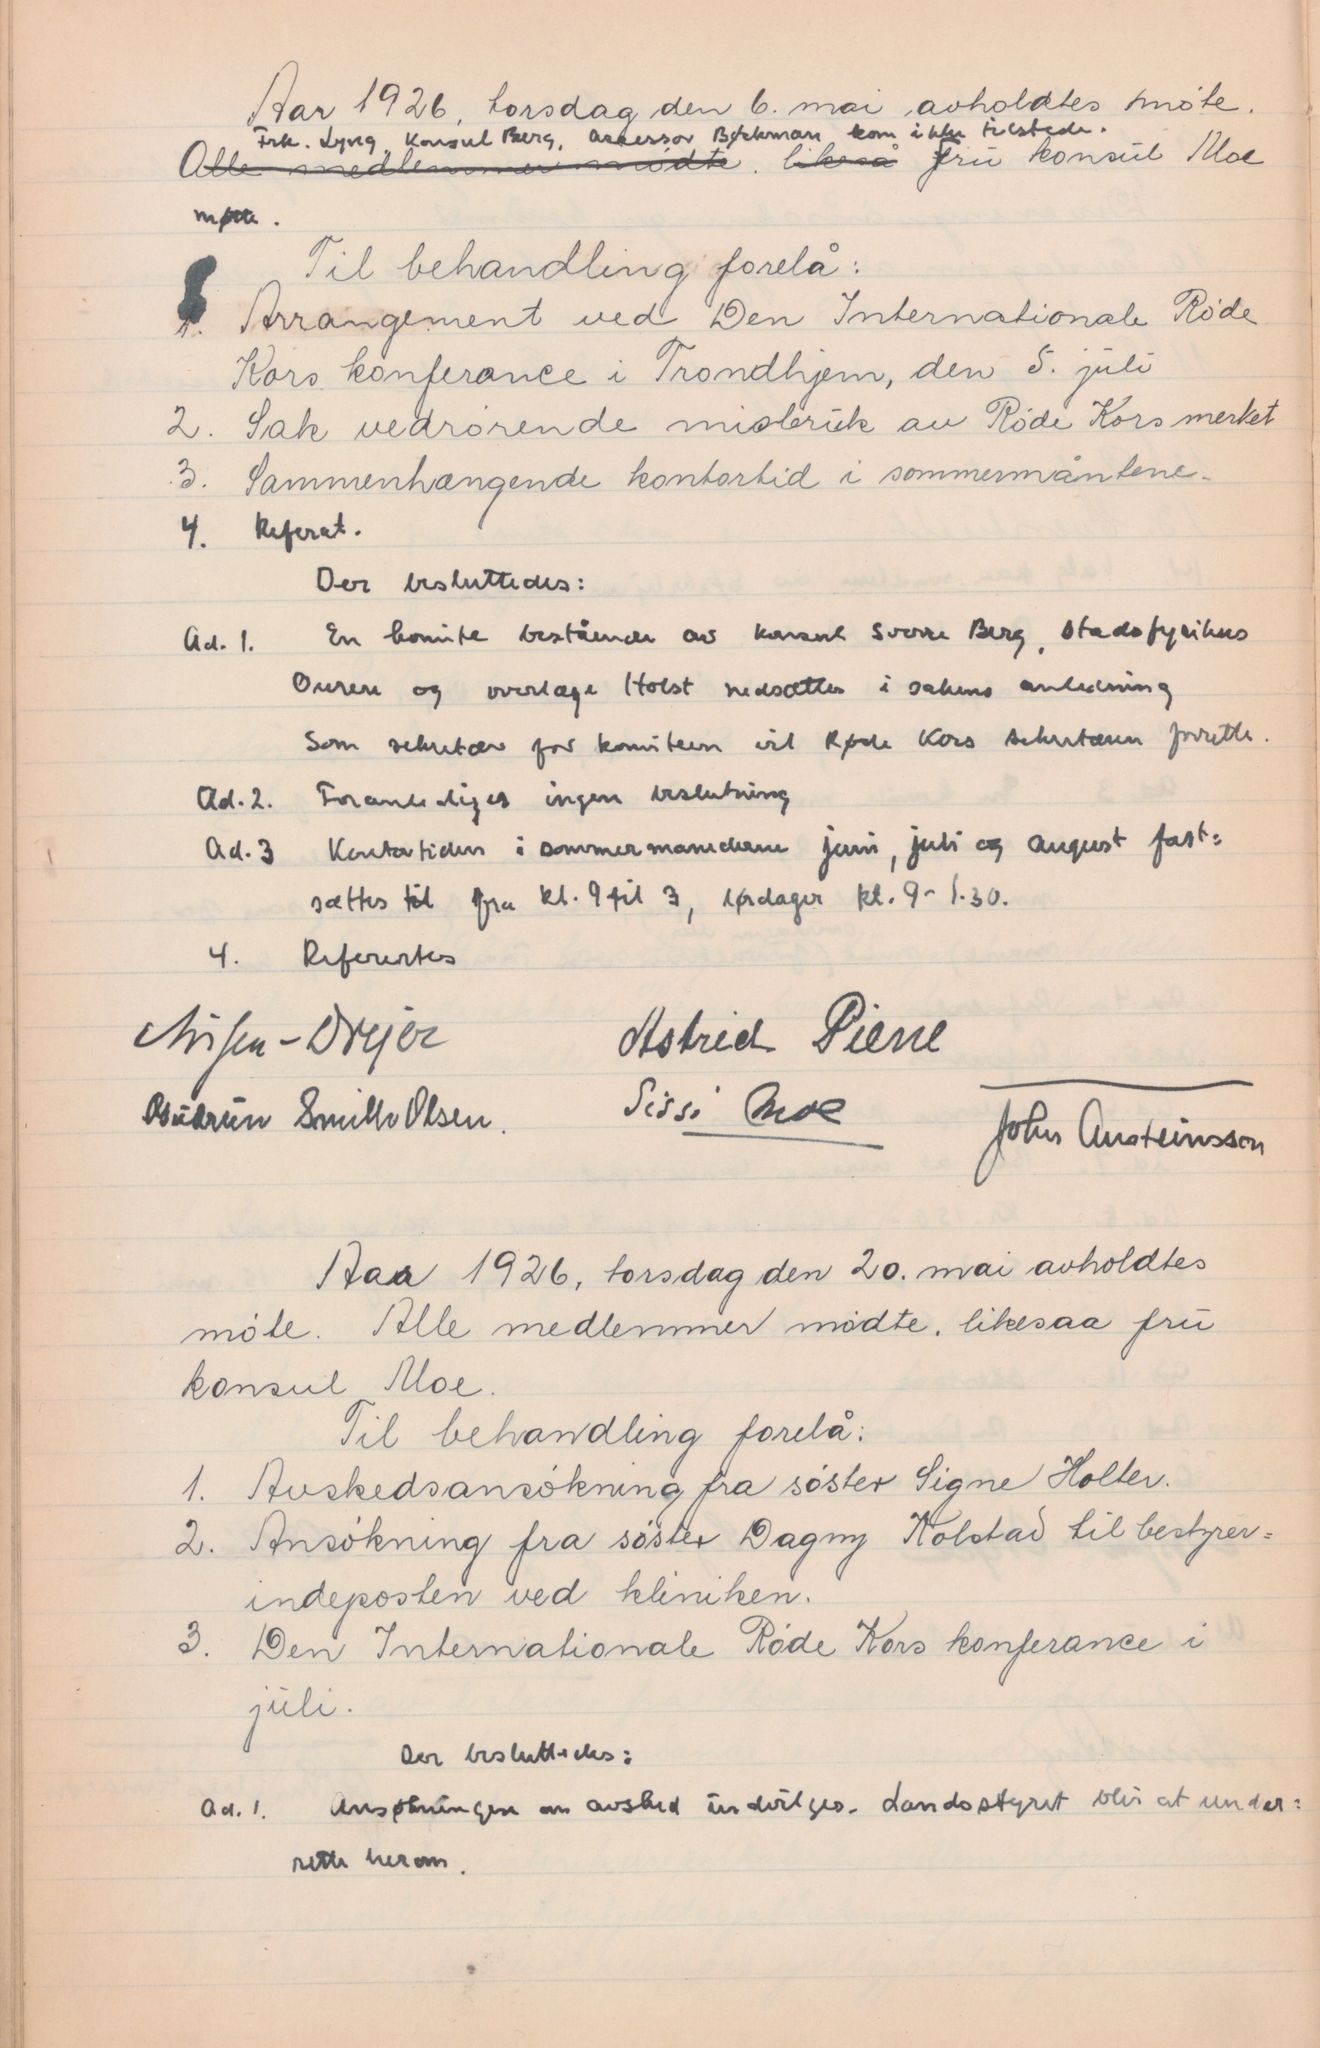 Aar 1926, torsdag den 6. mai avholdtes möte.
Frk. Lyng, Konsul Berg, assessor Bøckman kom ikke tilstede.
Alle medlemmer mødte. likeså Fru konsul Moe
møtte.
Til behandling forelå:
1. Arrangement ved Den Internationale Röde
Kors konferance i Trondhjem, den 5. juli
2. Sak vedrörende misbruk av Röde Kors merket
3. Sammenhængende kontortid i sommermåntene.
4. Referat.
Der besluttedes:
Ad. 1. En komite bestående av konsul Sverre Berg, stadsfysikus
Ouren og overlæge Holst nedsættes i sakens anledning
Som sekretær for komiteen vil Røde Kors sekretæren forrette.
Ad. 2. Foranlediges ingen beslutning
Ad. 3 Kontortiden i sommermanederne juni, juli og august fast=
sættes til fra kl. 9 til 3, lørdager kl. 9 - 1.30.
4. Refertes
Nissen-Drejer Astrid Piene
Gudrun Smith Olsen. Sissi Moe John Austeinsson
Aar 1926, torsdag den 20. mai avholdtes
möte. Alle medlemmer mødte, likesaa fru
konsul Moe.
Til behandling forelå:
1. Avskedsansökning fra söster Signe Holter.
2. Ansökning fra söster Dagny Kolstad til bestyrer=
indeposten ved kliniken.
3. Den Internationale Röde Kors konferance i
juli.
Der besluttedes:
Ad. 1. Ansøkningen om avsked indvilges. Landsstyret blir at under=
rette herom.